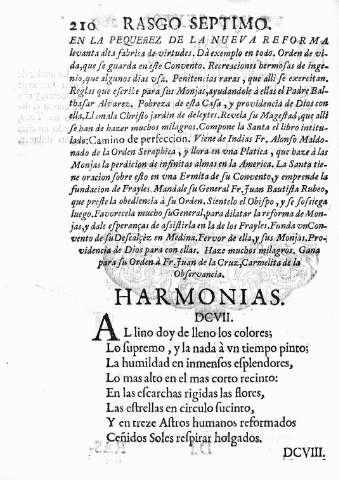 210 RASGO SEPTIMO.
EN LA PEQUEÑEZ DE LA NUEVA REFORMA
levanta alta fabrica de virtudes. Dà exemplo en todo. Orden de vi-
da, que se guarda en este Convento. Recreaciones hermosas de inge-
nio, que algunos dias vsa. Penitencias raras, que alli se exercitan.
Reglas que escrive para sus Monjas, ayudandole à ellas el Padre Bal-
thasar Alvarez. Pobreza de esta Casa, y providencia de Dios con
ella. Llamala Christo jardin de deleytes. Revela su Magestad, que alli
se han de hazer muchos milagros. Compone la Santa el libro intitu-
lado: Camino de perfeccion. Viene de Indias Fr. Alonso Maldo-
nado de la Orden Seraphica, y llora en vna Platica, que haze à las
Monjas la perdicion de infinitas almas en la America. La Santa tie-
ne oracion sobre esto en vna Ermita de su Convento, y emprende la
fundacion de Frayles. Mandale su General Fr. Juan Bautista Rubeo,
que preste la obediencia à su Orden. Sientelo el Obispo, y se sossiega
luego. Favorecela mucho su General, para dilatar la reforma de Mon-
jas, y dale esperanças de asistirla en la de los Frayles. Funda vn Con-
vento de su Descalçèz en Medina. Fervor de ella, y sus Monjas. Pro-
videncia de Dios para con ellas. Haze muchos milagros. Gana
para su Orden à Fr. Juan de la Cruz, Carmelita de la
Observancia.
HARMONIAS.
DCVII.
AL lino doy de lleno los colores;
Lo supremo, y la nada à vn tiempo pinto;
La humildad en inmensos esplendores,
Lo mas alto en el mas corto recinto:
En las escarchas rigidas las flores,
Las estrellas en circulo sucinto,
Y en treze Astros humanos reformados
Ceñidos Soles respirar holgados.
DCVIII.